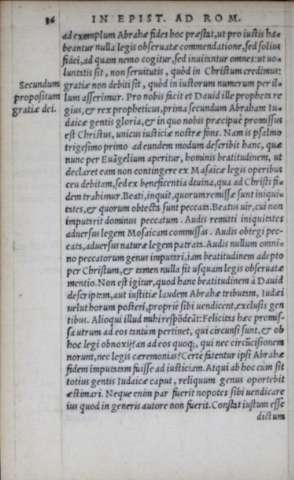 86 IN EPIST. AD ROM.
ad exemplum Abrahæ fides hoc præstat, ut pro iustis ha-
beantur nulla legis obseruatæ commendatione, sed solius
fidei, ad quam nemo cogitur, sed inuitantur omnes: ut uo-
luntatis sit, non seruitutis, quòd in Christum credimus:
Secundum gratiæ non debiti sit, quòd in iustorum numerum per il-
propositum lum asserimur. Pro nobis facit et Dauid ille propheta re
gratiæ dei. gius, & rex propheticus, prima secundum Abraham Iu-
daicæ gentis gloria, & in quo nobis præcipuè promissus
est Christus, unicus iusticiæ nostræ fons. Nam is psalmo
trigesimo primo ad eundem modum describit hanc, quæ
nunc per Euãgelium aperitur, hominis beatitudinem, ut
declaret eam non contingere ex Mosaicæ legis operibus
ceu debitam, sed ex beneficentia diuina, quã ad Christi fi-
dem trahimur. Beati, inquit, quorum remissæ sunt iniqui-
tates, & quorum obtecta sunt peccata. Beatus uir, cui non
imputarit dominus peccatum. Audis remitti iniquitates
aduersus legem Mosaicam commissas. Audis obtegi pec-
cata, aduersus naturæ legem patrata. Audis nullum omni-
no peccatorum genus imputari, iam beatitudinem adepto
per Christum, & tamen nulla fit usquam legis obseruatæ
mentio. Non est igitur, quod hanc beatitudinem à Dauid
descriptam, aut iustitiæ laudem Abrahæ tributam, Iudæi
uelut horum posteri, propriè sibi uendicent, exclusis gen
tibus. Alioqui illud mihi respõdeãt: Felicitas hæc promis-
sa utrum ad eos tantum pertinet, qui circunsi sunt, & ob
hoc legi obnoxij: an ad eos quoq;, qui nec circũcisionem
norunt, nec legis cæremonias? Certè fatentur ipsi Abrahæ
fidem imputatam fuisse ad iusticiam. Atqui ab hoc cùm sit
totius gentis Iudaicæ caput, reliquum genus oportebit
æstimari. Neque enim par fuerit nepotes sibi uendicare
ius quod in generis autore non fuerit. Constat iustum esse
dictum